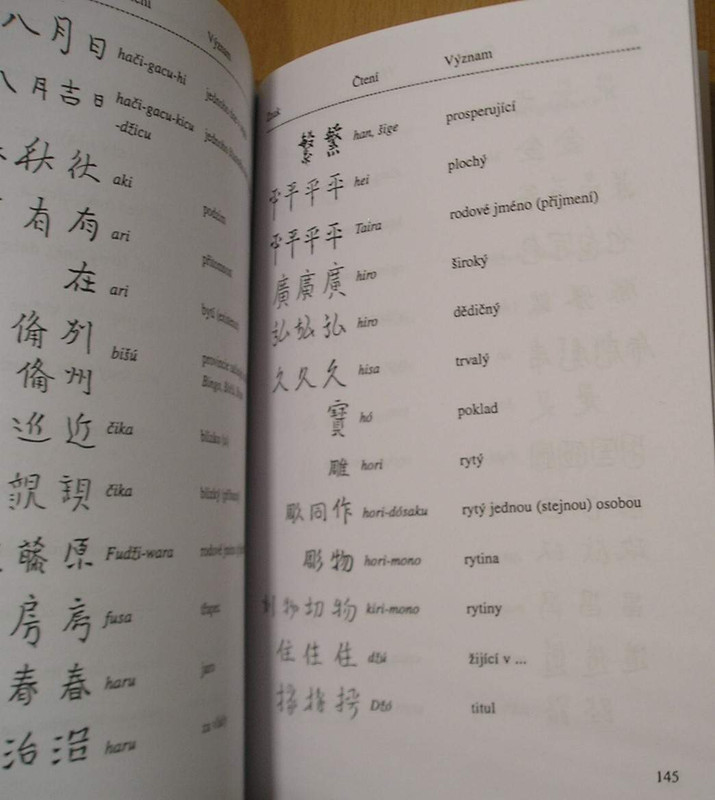 Význam
八月日 hači-gacu-hi
八月吉日 hači-gacu-kicu
-džicu
秋 aki
有 有 ari
在 ari
俻 列 bišú
俻 州 provincie
Bingo,
近 čika blízko
親 čika blízký
藤原 Fudži-wara rodové
房 房 fusa
春 春 haru
治 治 haru
Znak Čtení Význam
繁 繁 han, šige prosperující
平 平 平 平 hei plochý
平 平 平 平 Taira rodové jméno (příjmení)
廣 廣 廣 hiro široký
弘 弘 弘 hiro dědičný
久 久 久 hisa trvalý
寳 hó poklad
雕 hori rytý
同作 hori-dósaku rytý jednou (stejnou) osobou
彫物 hori-mono rytina
物 切物 kiri-mono rytiny
住 住 住 džú žijící v ...
Džó titul
145